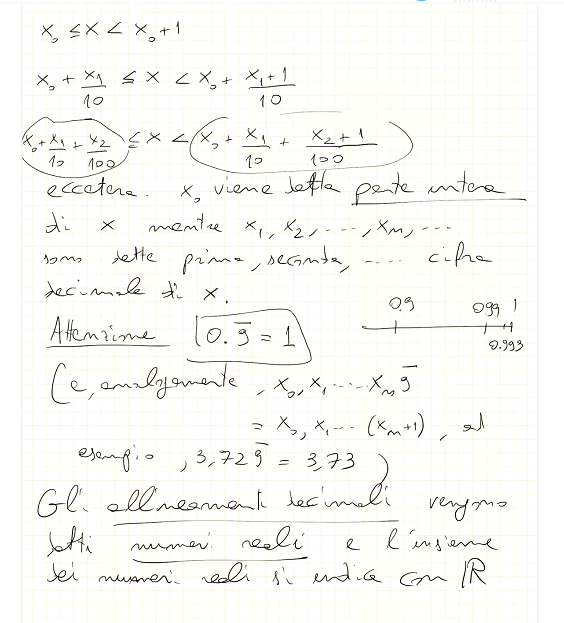 x₀ ≤ x < x₀+1
x₀ + x₁/10 ≤ x < x₀ + (x₁+1)/10
x₀ + x₁/10 + x₂/100 ≤ x < x₀ + x₁/10 + (x₂+1)/100
eccetera. x₀ viene detta parte intera
di x mentre x₁, x₂, ..., xₘ, ...
sono dette prima, seconda, .... cifra
decimale di x.
0.9 0.99 1
0.999
Attenzione 0.9̅ = 1
(e, analogamente, x₀, x₁ .... xₘ 9̅
= x₀, x₁ ... (xₘ+1), ad
esempio, 3,729̅ = 3,73)
Gli allineamenti decimali vengono
detti numeri reali e l'insieme
dei numeri reali si indica con ℝ